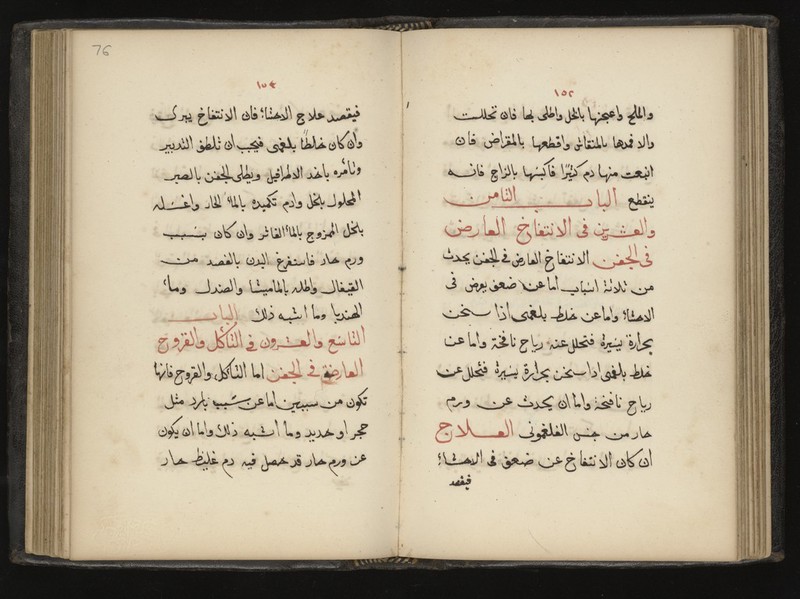 ١٥٢
والملح واعجنها بالخل واطلى بها فان تحللت
والا فمدها بالمنقاش واقطعها بالمقراض فان
انبعث منها دم كثيرًا فاكبسها بالزاج فانه
ينقطع الباب الثامن
والعشرين فى الانتفاخ العارض
فى الجفن الانتفاخ العارض فى الجفن يحدث
من ثلاثة اسباب اما عن ضعف يعرض فى
الاحشاء واما عن خلط بلغمى اذا سخن
بحرارة يسيرة فتحلل عنه رياح نافخة واما عن
خلط بلغمى اذا سخن بحرارة يسيرة فتحلل عن
رياح نافخة واما ان يحدث عن ورم
حار من جنس الفلغمونى العلاج
ان كان الانتفاخ عن ضعف فى الاحشاء
فيقصد
76
١٥٣
فيقصد علاج الاحشاء فان الانتفاخ يبرى
وان كان خلطًا بلغمى فيجب ان تلطف التدبير
وتأمره باخذ الاطرافيل ويطلى الجفن بالصبر
المحلول بالخل وادم تكميده بالماء الحار واغسله
بالخل الممزوج بالماء الفاتر وان كان بسبب
ورم حار فاستفرغ البدن بالفصد من
القيفال واطله بالماميثا والصندل وماء
الهندبا وما اشبه ذلك الباب
التاسع والعشرون فى التأكل والقروح
العارضة فى الجفن اما التأكل والقروح فانها
تكون من سببين اما عن سبب بارد مثل
حجر او حديد وما اشبه ذلك واما ان يكون
عن ورم حار قد حصل فيه دم غليظ حار